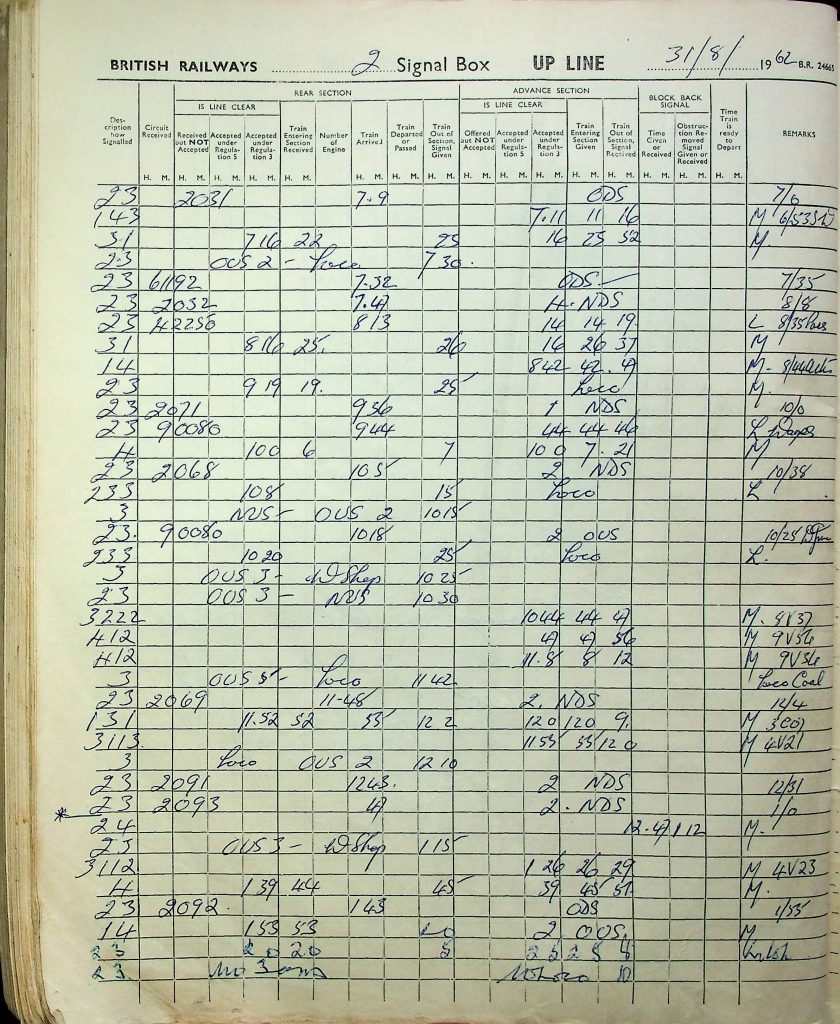 BRITISH RAILWAYS 2 Signal Box UP LINE 31/8/ 1962 B.R. 24665
REAR SECTION ADVANCE SECTION
IS LINE CLEAR IS LINE CLEAR BLOCK BACK SIGNAL
Description how Signalled Circuit Received Received but NOT Accepted Accepted under Regulation 5 Accepted under Regulation 3 Train Entering Section Received Number of Engine Train Arrived Train Departed or Passed Train Out of Section, Signal Given Offered but NOT Accepted Accepted under Regulation 5 Accepted under Regulation 3 Train Entering Section Given Train Out of Section, Signal Received Time Given or Received Obstruction Removed Signal Given or Received Time Train is ready to Depart REMARKS
H. M. H. M. H. M. H. M. H. M. H. M. H. M. H. M. H. M. H. M. H. M. H. M. H. M. H. M. H. M. H. M.
23 2031 7.9 ODS 7/0
143 7.11 11 16 M
31 716 22 25 16 25 32 M.
23 OUS 2 - Loco 7 30.
23 61192 7.32 ODS 7/35
23 2032 7.47 4. NDS 8/8
23 42250 813 14 14 19 L 8/35
31 816 25. 26 16 26 37 M
14 842 42. 47 M. 8/44
23 9 19 19. 25 Loco M.
23 2071 936 1 NDS 10/0
23 90080 944 44 44 46 L
4 100 6 7 100 7. 21 M
23 2068 105 2 NDS 10/38
233 108 15 Loco L
3 NUS - OUS 2 1015
23. 90080 1018 2 OUS 10/25
233 1020 25 Loco L.
3 OUS 3 - W Shop 10 25
23 OUS 3 - NUS 10 30
3222 1044 44 47 M. 8V37
412 47 47 56 M 9V36
412 11.8 8 12 M 9V36
3 OUS 5 - Loco 11 42 Loco Coal
23 2069 11-48 2. NDS 12/4
131 11.52 52 55 12 2 120 120 9. M
3113 1155 55 120 M 4V21
3 Loco OUS 2 12 10
23 2091 1243. 2 NDS 12/31
* 23 2093 47 2. NDS 1/0
24 12.47 1 12 M.
23 OUS 3 - W Shop 1 15
3112 1 26 26 29 M 4V23
4 1 39 44 45 39 45 51 M.
23 2092. 143 ODS 1/55
14 153 53 20 2 OUS, M
23 2 0 20 5 2 5 2 5 8
23 10